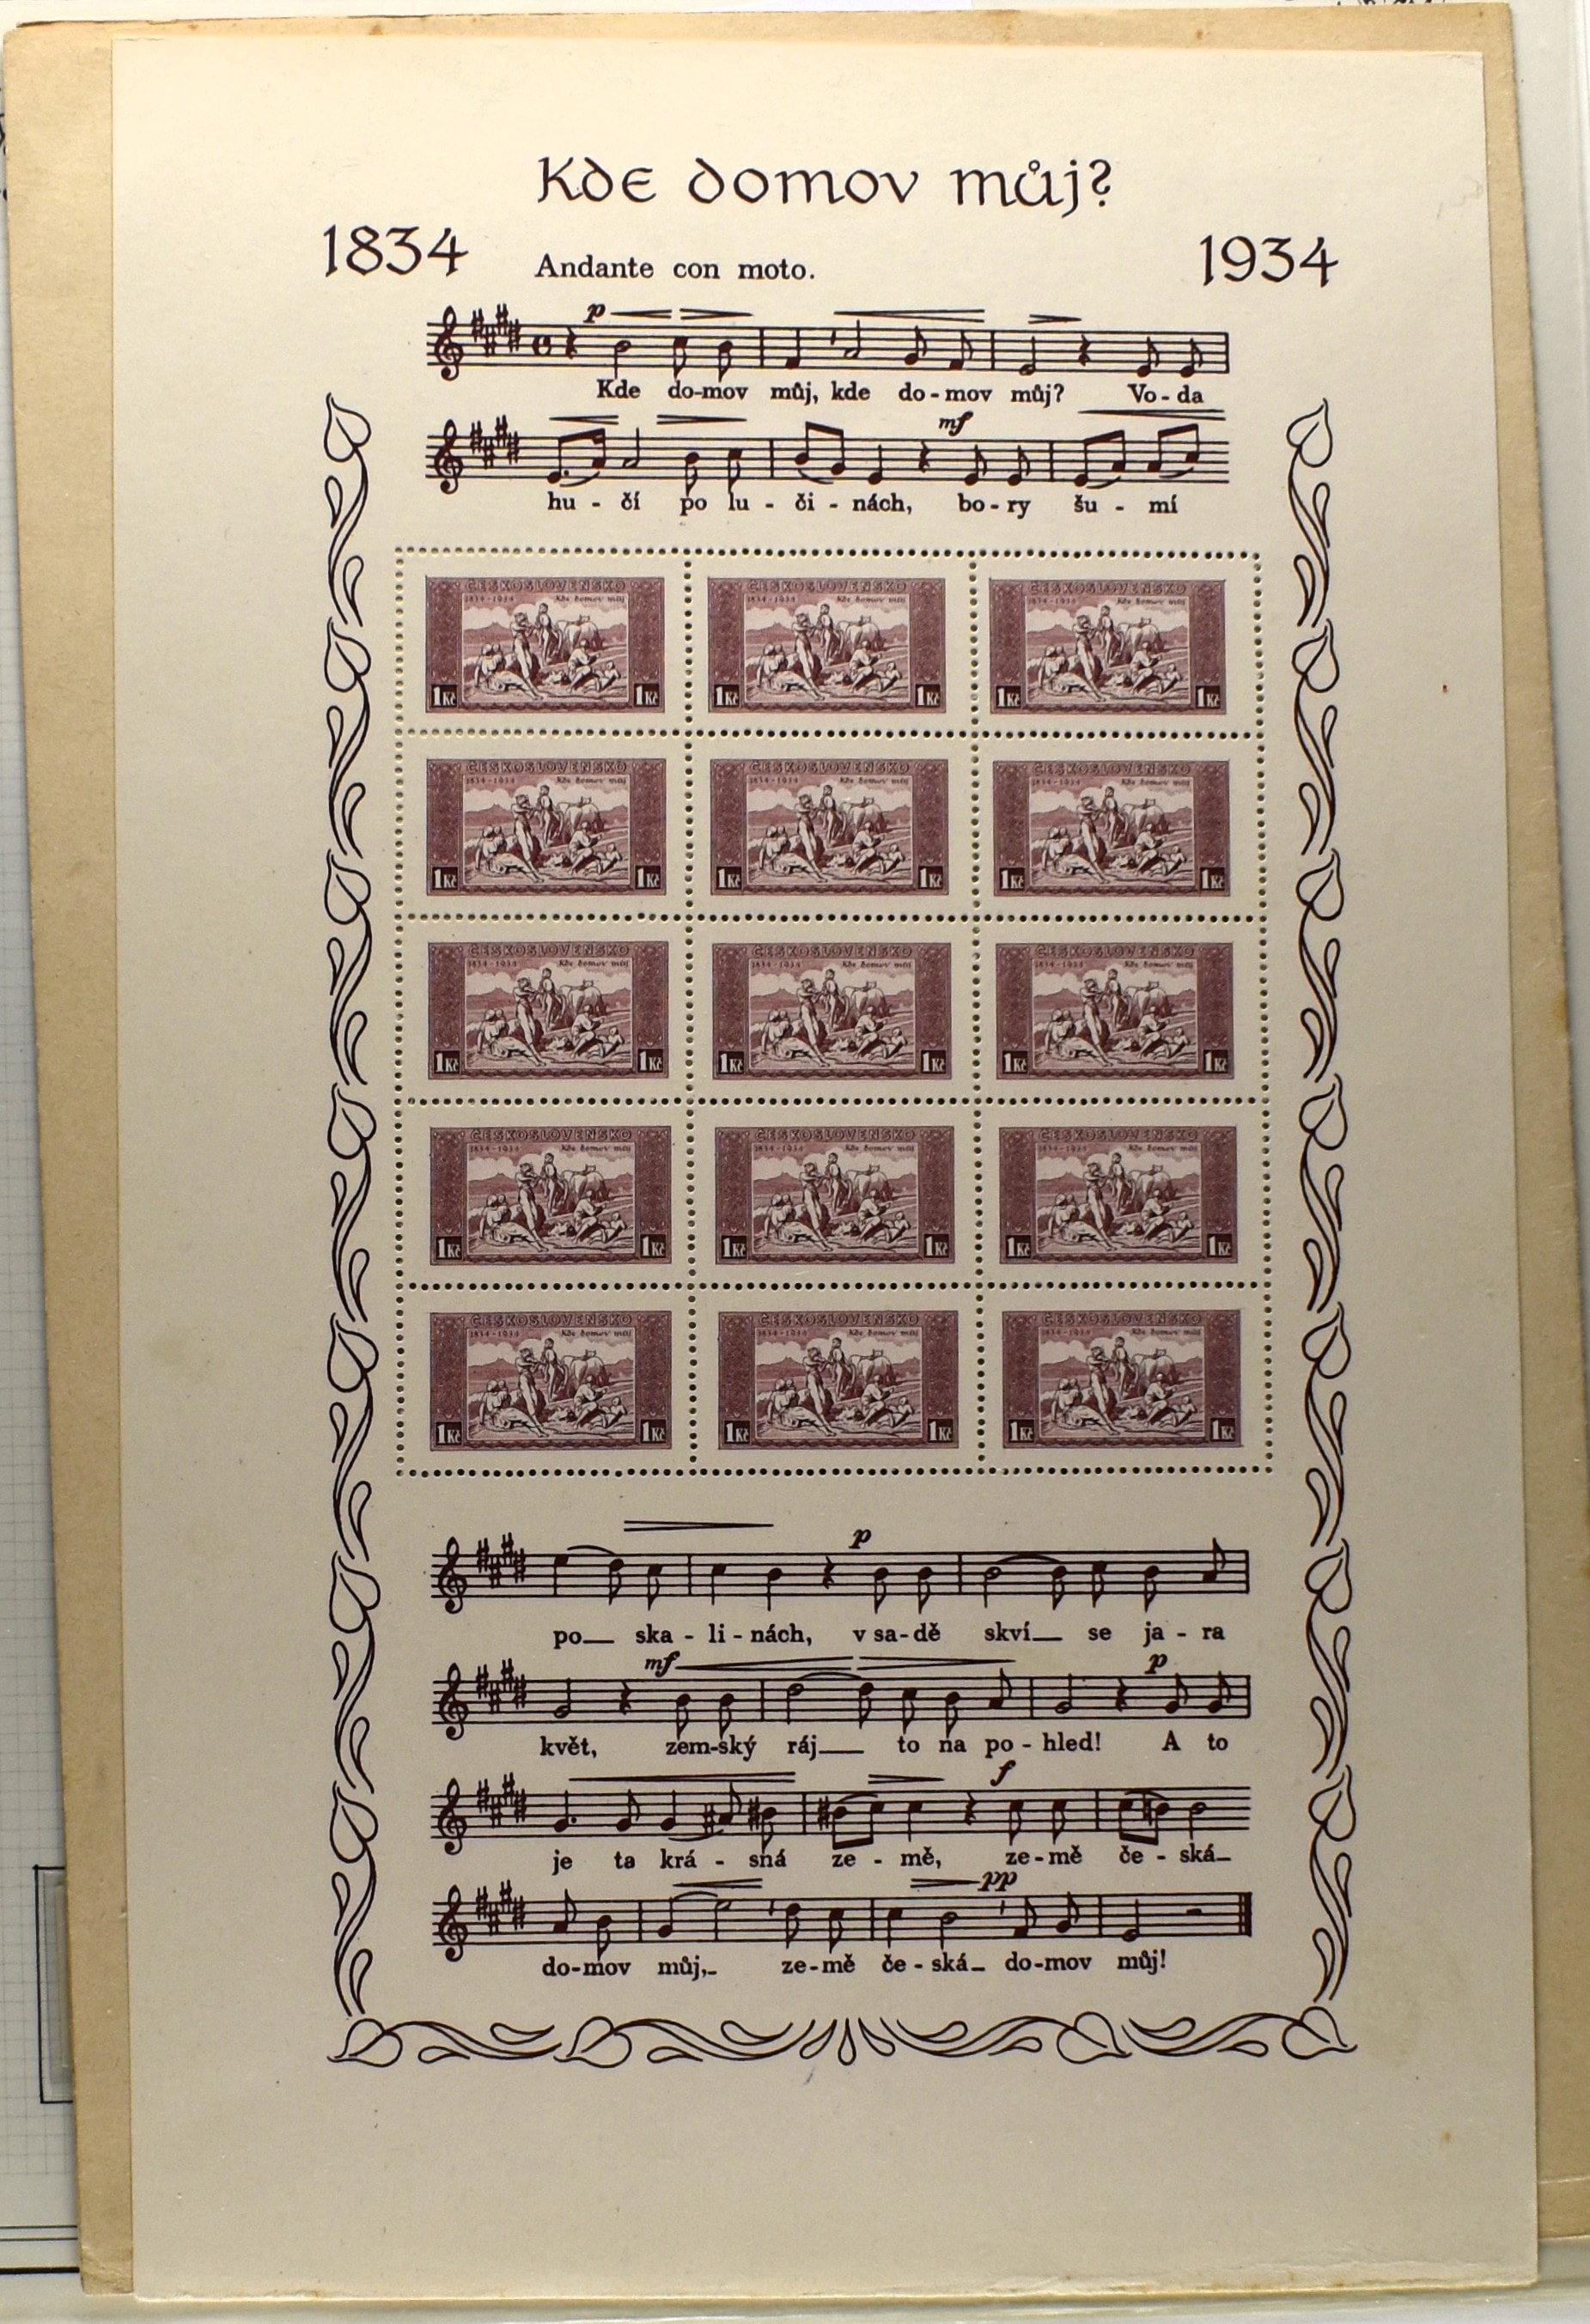 Kde domov můj?
1834 1934
Andante con moto.
p
Kde do-mov můj, kde do-mov můj? Vo-da
mf
hu - čí po lu - či - nách, bo-ry šu - mí
ČESKOSLOVENSKO ČESKOSLOVENSKO ČESKOSLOVENSKO
1834-1934 Kde domov můj 1834-1934 Kde domov můj 1834-1934 Kde domov můj
1 Kč 1 Kč 1 Kč 1 Kč 1 Kč 1 Kč
ČESKOSLOVENSKO ČESKOSLOVENSKO ČESKOSLOVENSKO
1834-1934 Kde domov můj 1834-1934 Kde domov můj 1834-1934 Kde domov můj
1 Kč 1 Kč 1 Kč 1 Kč 1 Kč 1 Kč
ČESKOSLOVENSKO ČESKOSLOVENSKO ČESKOSLOVENSKO
1834-1934 Kde domov můj 1834-1934 Kde domov můj 1834-1934 Kde domov můj
1 Kč 1 Kč 1 Kč 1 Kč 1 Kč 1 Kč
ČESKOSLOVENSKO ČESKOSLOVENSKO ČESKOSLOVENSKO
1834-1934 Kde domov můj 1834-1934 Kde domov můj 1834-1934 Kde domov můj
1 Kč 1 Kč 1 Kč 1 Kč 1 Kč 1 Kč
ČESKOSLOVENSKO ČESKOSLOVENSKO ČESKOSLOVENSKO
1834-1934 Kde domov můj 1834-1934 Kde domov můj 1834-1934 Kde domov můj
1 Kč 1 Kč 1 Kč 1 Kč 1 Kč 1 Kč
p
po_ ska - li - nách, v sa-dě skví_ se ja - ra
mf p
květ, zem-ský ráj_ to na po - hled! A to
f
je ta krá - sná ze - mě, ze-mě če - ská_
pp
do-mov můj,_ ze-mě če - ská_ do-mov můj!